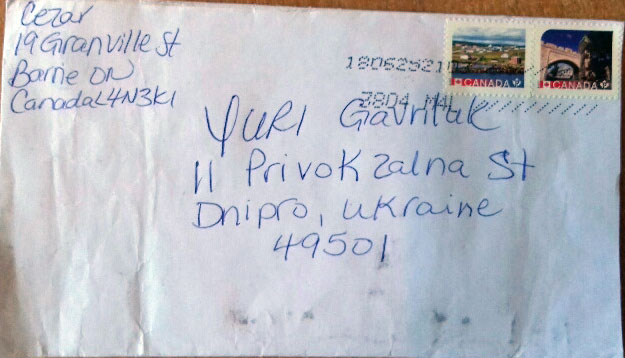 Cezar
19 Granville St
Barrie ON
Canada L4N3K1
CANADA P
CANADA P
Yuri Gavriliuk
11 Privokzalna St
Dnipro, Ukraine
49501